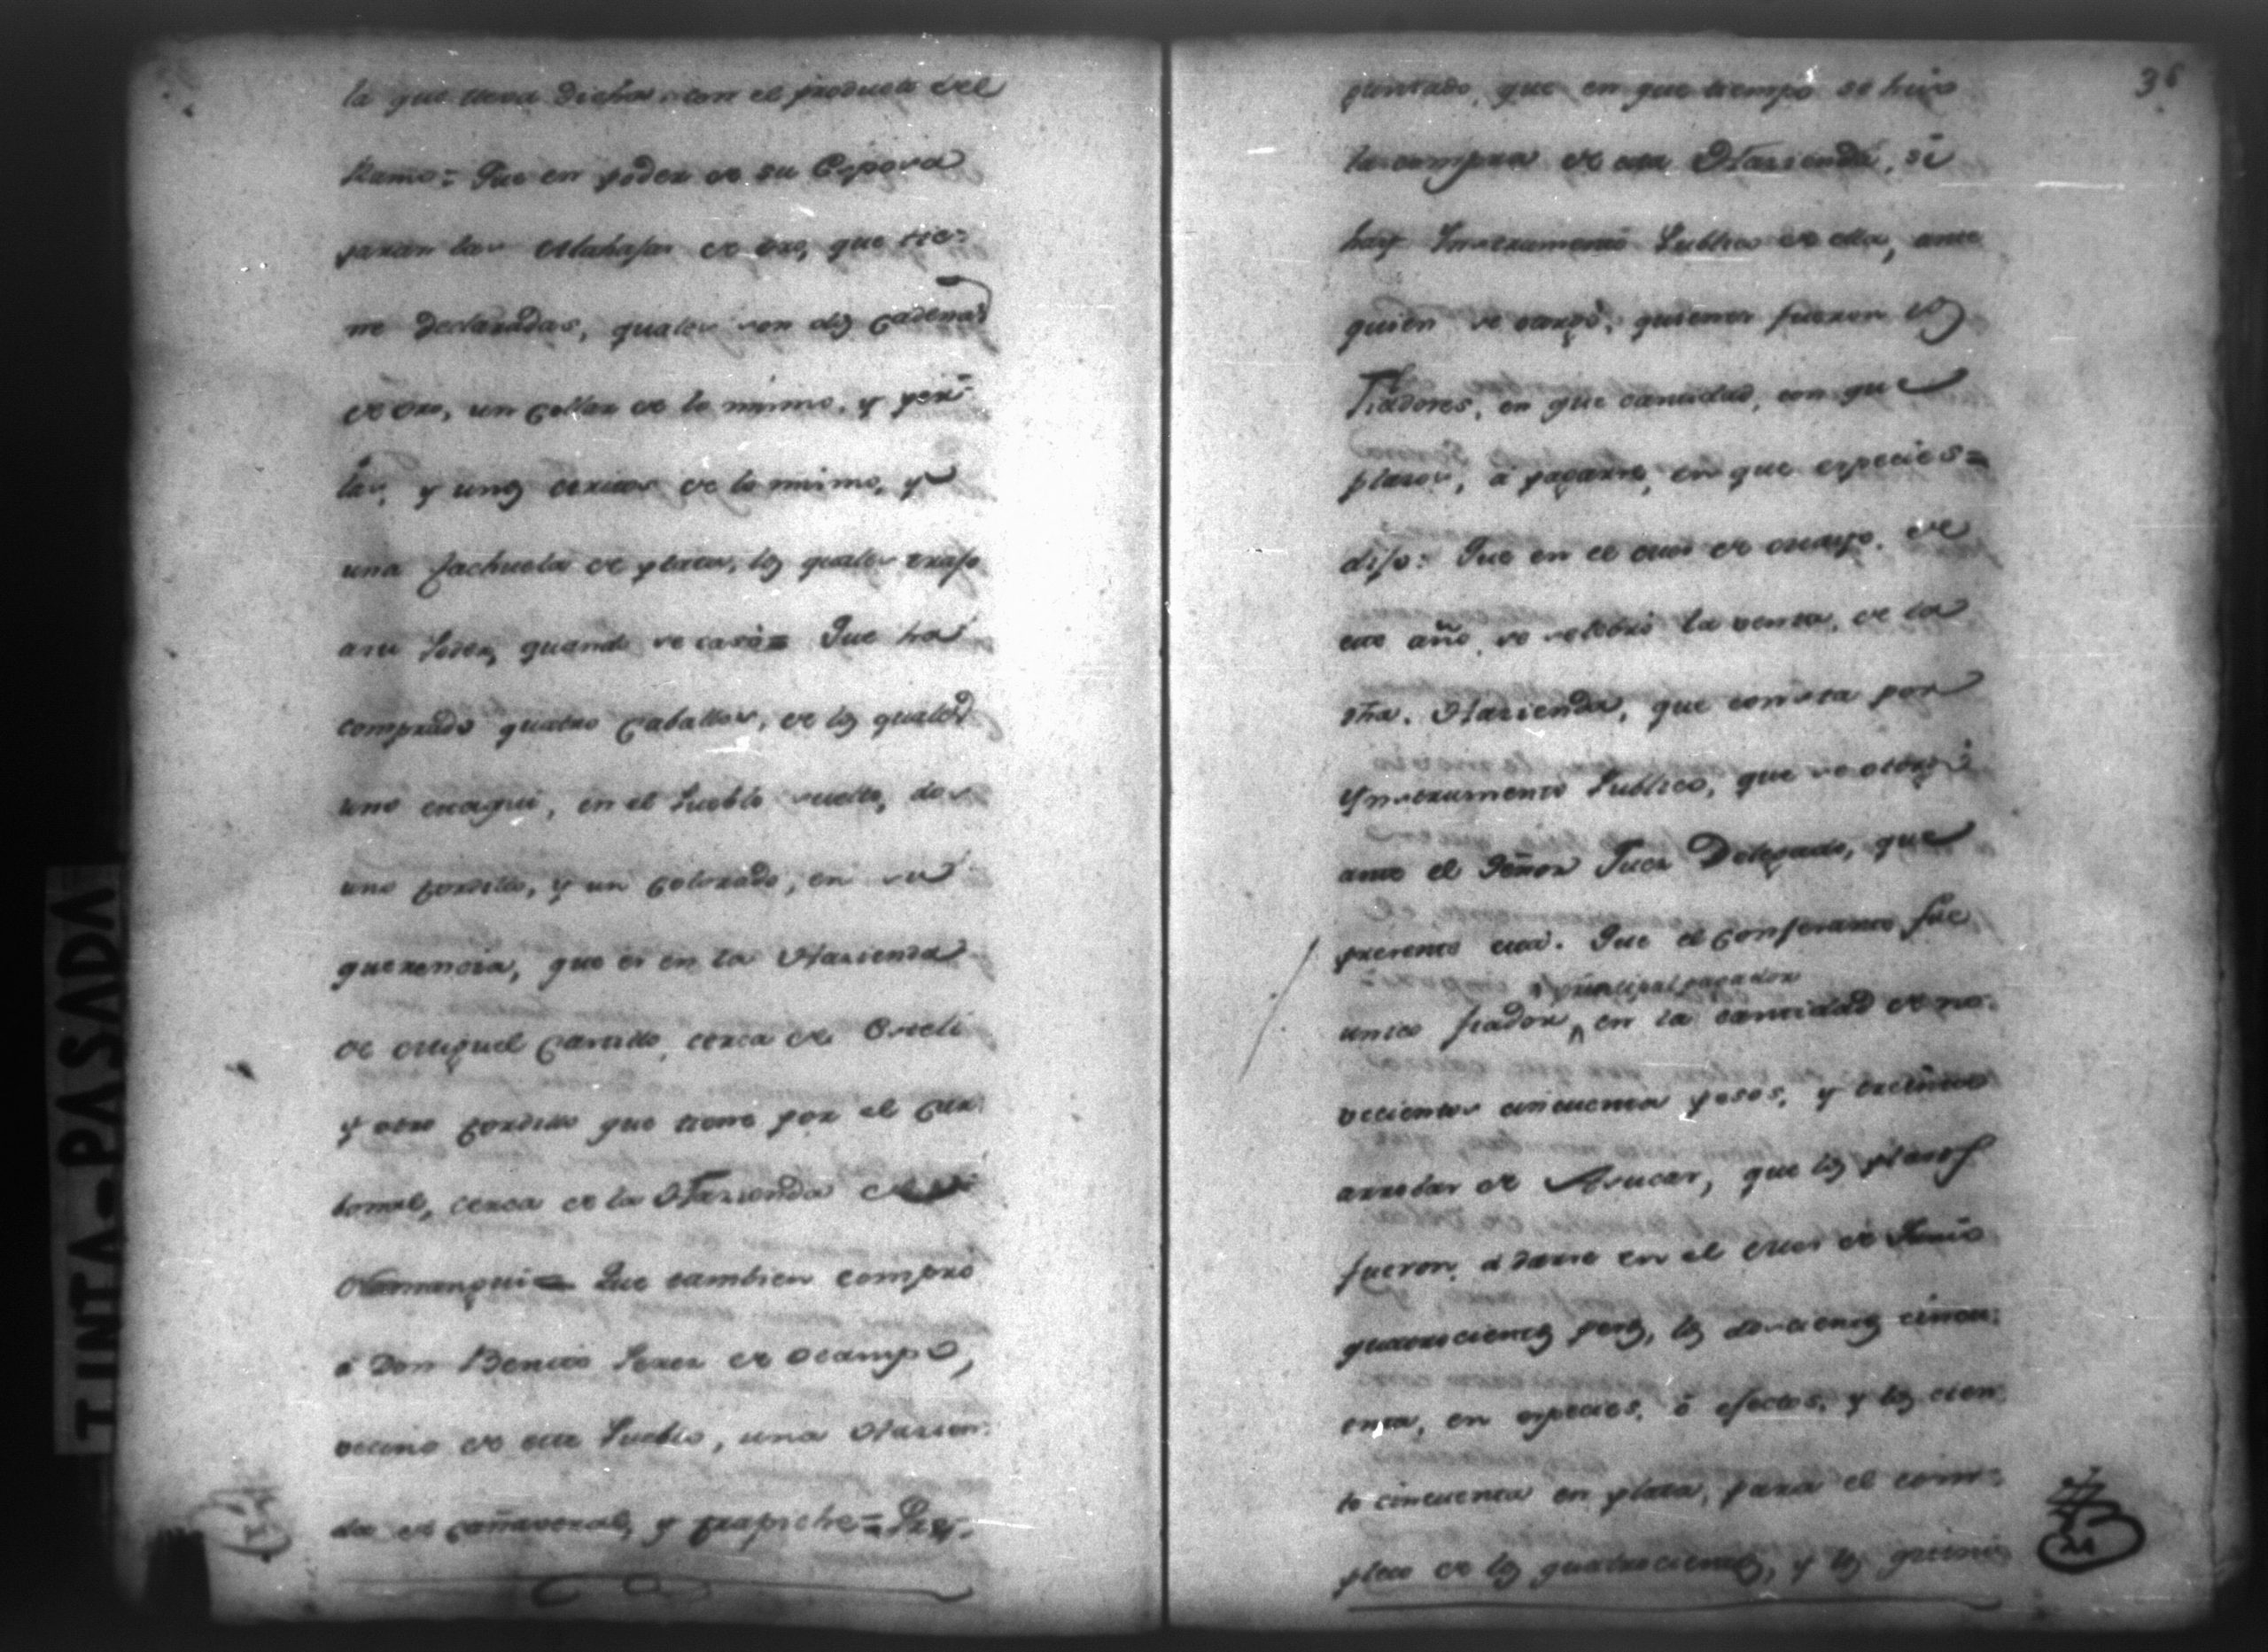 la que lleva dicha con el producto del
Ramo = Que en poder de su Esposa
paran las Alahajas de oro, que tie-
ne declaradas, quales son dos Cadenas
de Oro, un Collar de lo mismo, y per-
las, y unos de lo mismo, y
una fachuela de plata, los quales trajo
a su Poder, quando se casò = Que ha
comprado quatro Caballos, de los quales
uno esta aqui, en el Pueblo suelto, dos
uno tordillo, y un Colorado, en su
querencia, que es en la Hazienda
de Miguel Carrillo, cerca de
y otro tordillo que tiene por el
cerca de la Hazienda de
Que tambien comprò
à Don Benito Perez de Ocampo,
vecino de este Pueblo, una Hazien-
da de Cañaveral, y trapiche = Pre-
36
guntado, que en que tiempo se hizo
la compra de esta Hazienda, si
hay Instrumento Publico de ella, ante
quien se otorgò, quienes fueron los
Fiadores, en que cantidad, con que
plazos, à pagarse, en que especies =
dijo: Que en el mes de Mayo, de
este año, se celebrò la venta, de la
dha. Hazienda, que consta por
Ynstrumento Publico, que se otorgò
ante el Señor Juez Delegado, que
presente està. Que el Confesante fue
y principal pagador
unico fiador, en la cantidad de no-
vecientos cincuenta pesos, y
arrobas de Asucar, que los plazos
fueron, à darse en el mes de Junio
quatrocientos pesos, los doscientos cincu-
enta, en especies, ò efectos, y los cien-
to cincuenta en plata, para el com-
pleto de los quatrocientos, y los quini
TINTA-PASADA